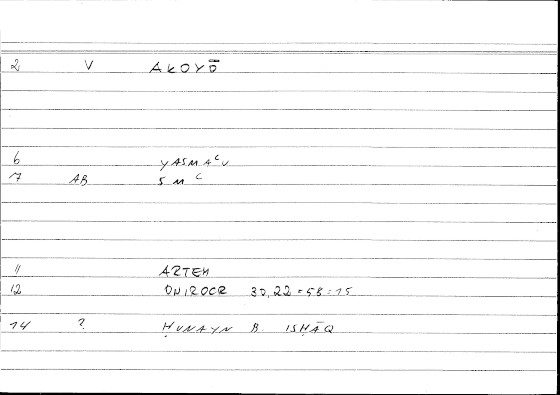 2 V AKOYŌ
6 YASMAᶜU
7 AB SMᶜ
11 ARTEM
12 ONIROCR 30,22 = 58:15
14 ? ḤUNAYN B. ISḤĀQ